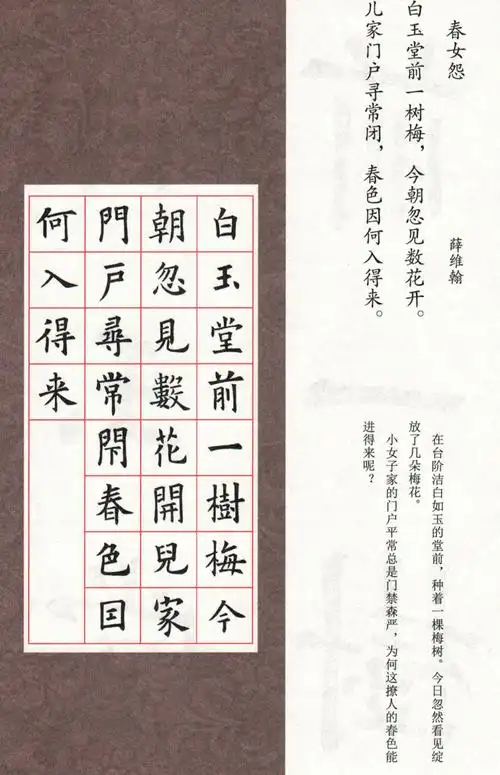 春女怨
薛维翰
白玉堂前一树梅，今朝忽见数花开。
儿家门户寻常闭，春色因何入得来。
在台阶洁白如玉的堂前，种着一棵梅树。今日忽然看见绽
放了几朵梅花。
小女子家的门户平常总是门禁森严，为何这撩人的春色能
进得来呢？
白玉堂前一樹梅今
朝忽見數花開兒家
門戶尋常閇春色囙
何入得来